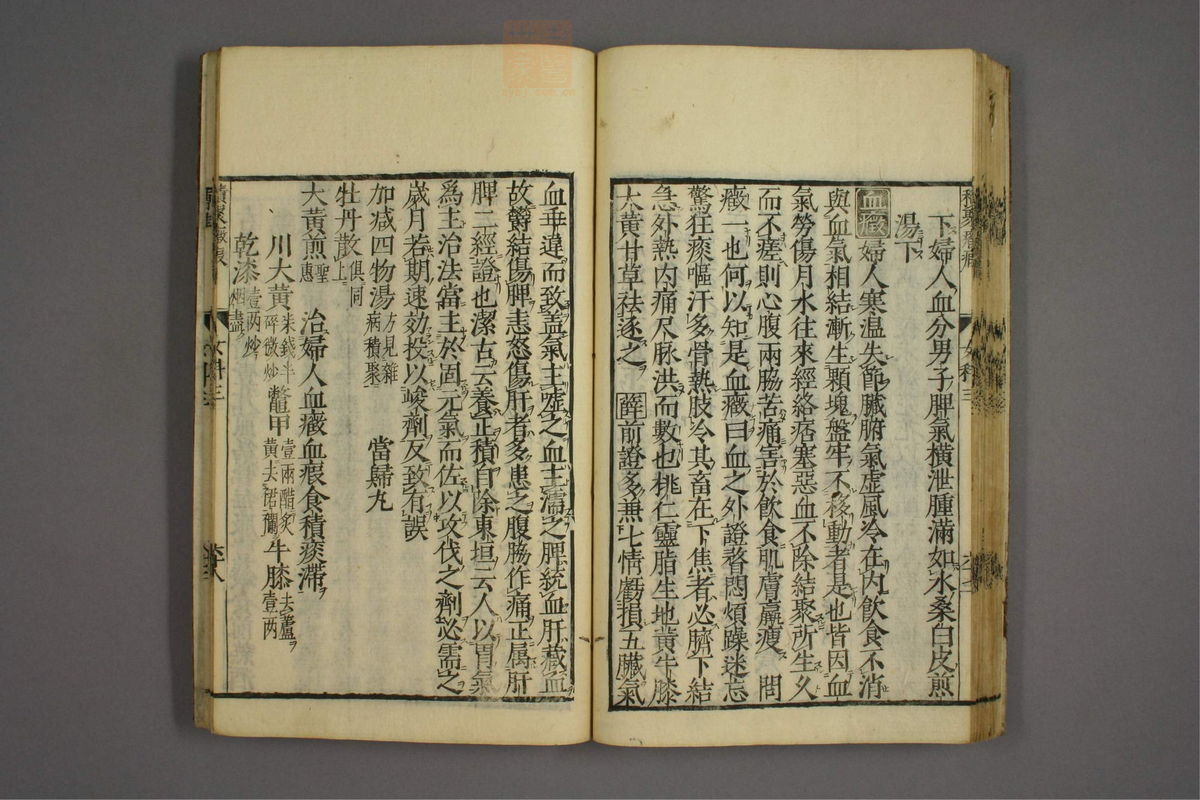 下婦人血分男子脾氣橫泄腫滿如水桑白皮煎
湯下
血癥 婦人寒温失節臟腑氣虛風冷在内飲食不消
與血氣相結漸生顆塊盤牢不移動者是也皆因血
氣勞傷月水往來經絡痞塞惡血不除結聚所生久
而不瘥則心腹兩脇苦痛害於飲食肌膚羸瘦 問
癥一也何以知是血癥曰血之外證瞀悶煩躁迷忘
驚狂痰嘔汗多骨熱肢冷其畜在下焦者必臍下結
急外熱内痛尺脉洪而數也桃仁靈脂生地黄牛膝
大黄甘草祛逐之 薛 前證多兼七情虧損五臟氣
血乖違而致盖氣主噓之血主濡之脾統血肝藏血
故欝結傷脾恚怒傷肝者多患之腹脇作痛正屬肝
脾二經證也潔古云養正積自除東垣云人以胃氣
爲主治法當主於固元氣而佐以攻伐之劑必需之
歲月若期速効投以峻劑反致有誤
加减四物湯 方見雜病積聚 當歸丸
牡丹散 俱同上
大黄煎 聖惠 治婦人血癥血瘕食積痰滯
川大黄 碎微炒 鼈甲 壹兩醋炙黄去裙襴 牛膝 去蘆壹两
乾漆 壹两炒烟盡
積聚癥瘕
女科三